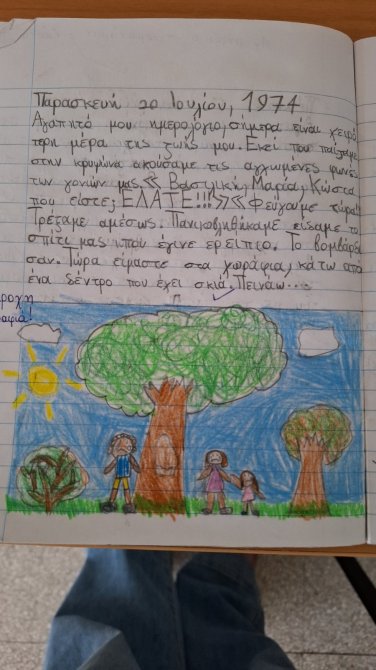 Παρασκευή 20 Ιουλίου, 1974
Αγαπητό μου ημερολόγιο, σήμερα είναι χειρό
τερη μέρα της ζωής μου. Εκεί που παίζαμε
στην κρυψώνα ακούσαμε τις αγχωμένες φωνές
των γονιών μας.≪ Βασιλική, Μαρία, Κώστα
που είστε; ΕΛΑΤΕ!!!≫≪ Φεύγουμε τώρα!
Τρέξαμε αμέσως. Πανικοβληθήκαμε είδαμε το
σπίτι μας που έγινε ερείπιο. Το βομβάρδι
σαν. Τώρα είμαστε στα χωράφια, κάτω από
ένα δέντρο που έχει σκιά. Πεινάω...